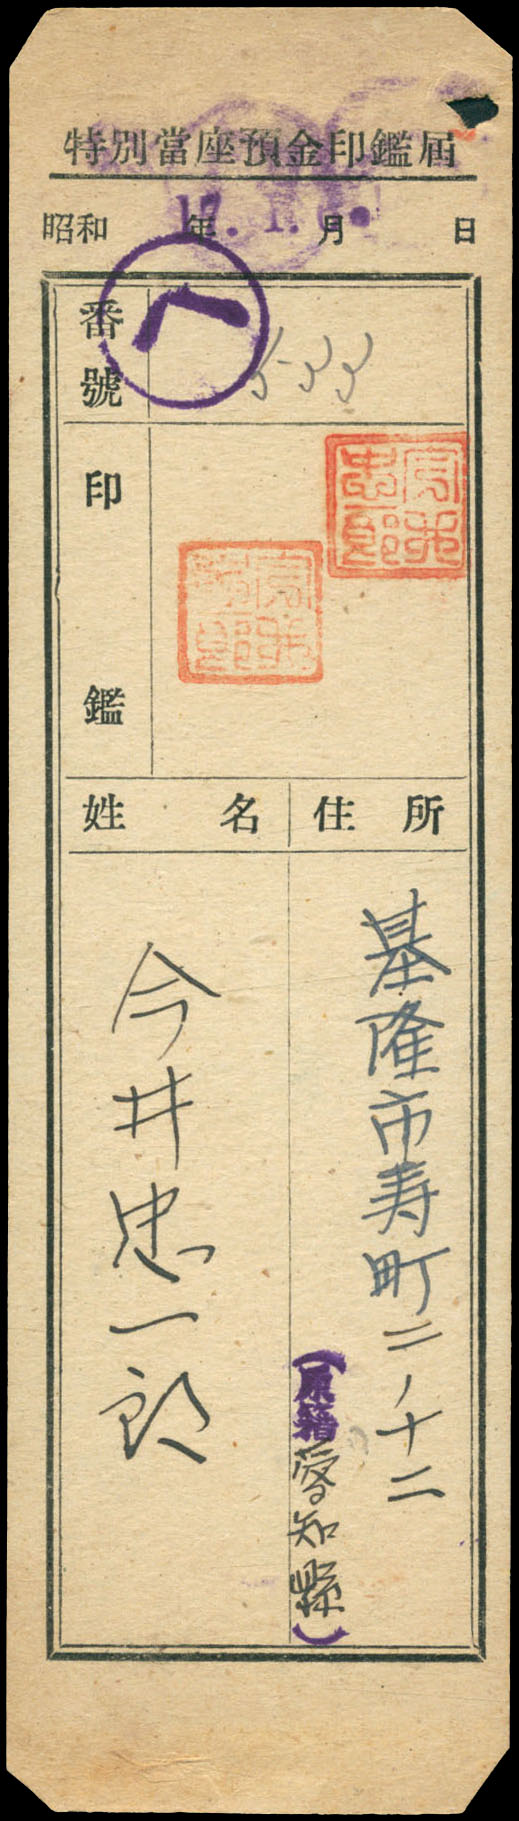 特別當座預金印鑑届
昭和 年 月 日
17.1.6.
番號 533
八
印鑑
姓名
住所
基隆市寿町二ノ十二
(原籍 愛知縣)
今井忠一郎